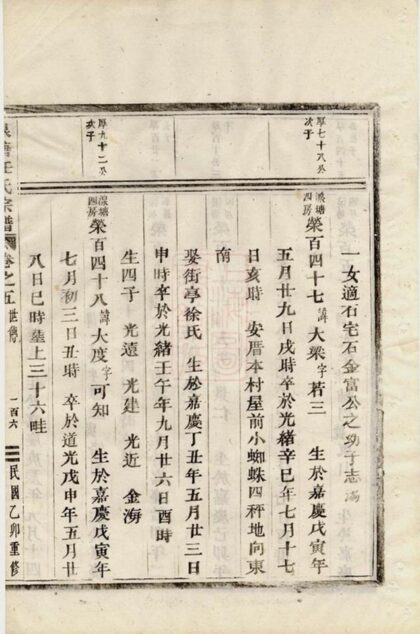 一女適石宅石金富公之幼子志海
厚七十八公
次子
浪塘
四房
榮百四十七諱大梁字若三 生於嘉慶戊寅年
五月廿九日戌時卒於光緒辛巳年七月十七
日亥時 安厝本村屋前小蜘蛛四秤地向東
南
娶街亭徐氏 生於嘉慶丁丑年五月廿三日
申時卒於光緒壬午年九月廿六日酉時
生四子 光遠 光建 光近 金海
厚九十二公
次子
浪塘
四房
榮百四十八諱大度字可知 生於嘉慶戊寅年
七月初三日丑時 卒於道光戊申年五月廿
八日巳時塟上三十六畦
浪塘王氏宗譜 卷之五 世傳 二百六 民國乙卯重修